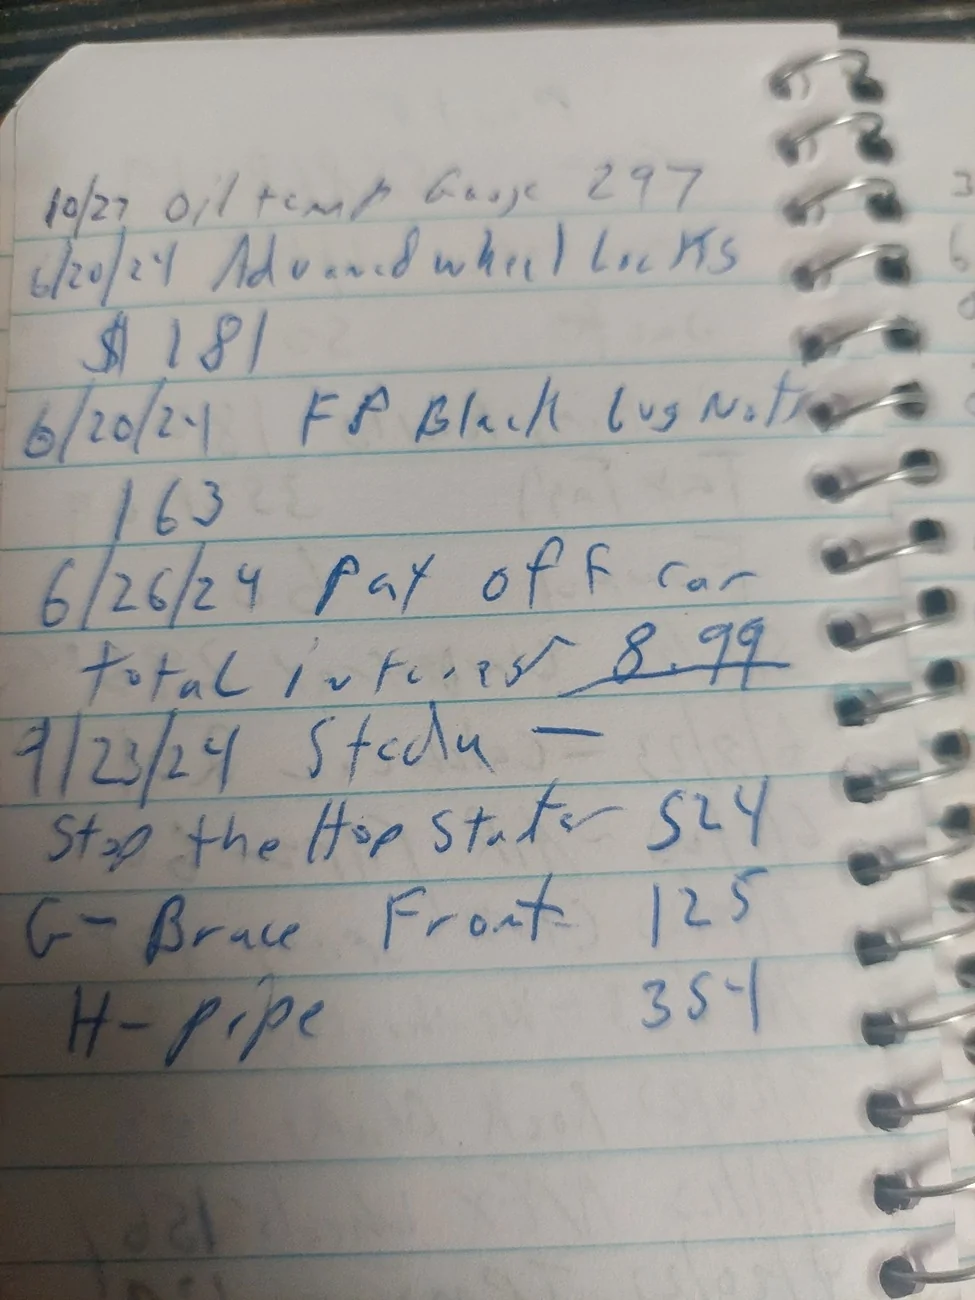 10/27 Oil temp Gauge 297
6/20/24 Advanced wheel Locks
$181
6/20/24 FP Black Lug Nuts
163
6/26/24 Pay off car
total interest 8.99
9/23/24 Steeda —
Stop the Hop Starter 524
G-Brace Front 125
H-pipe 354